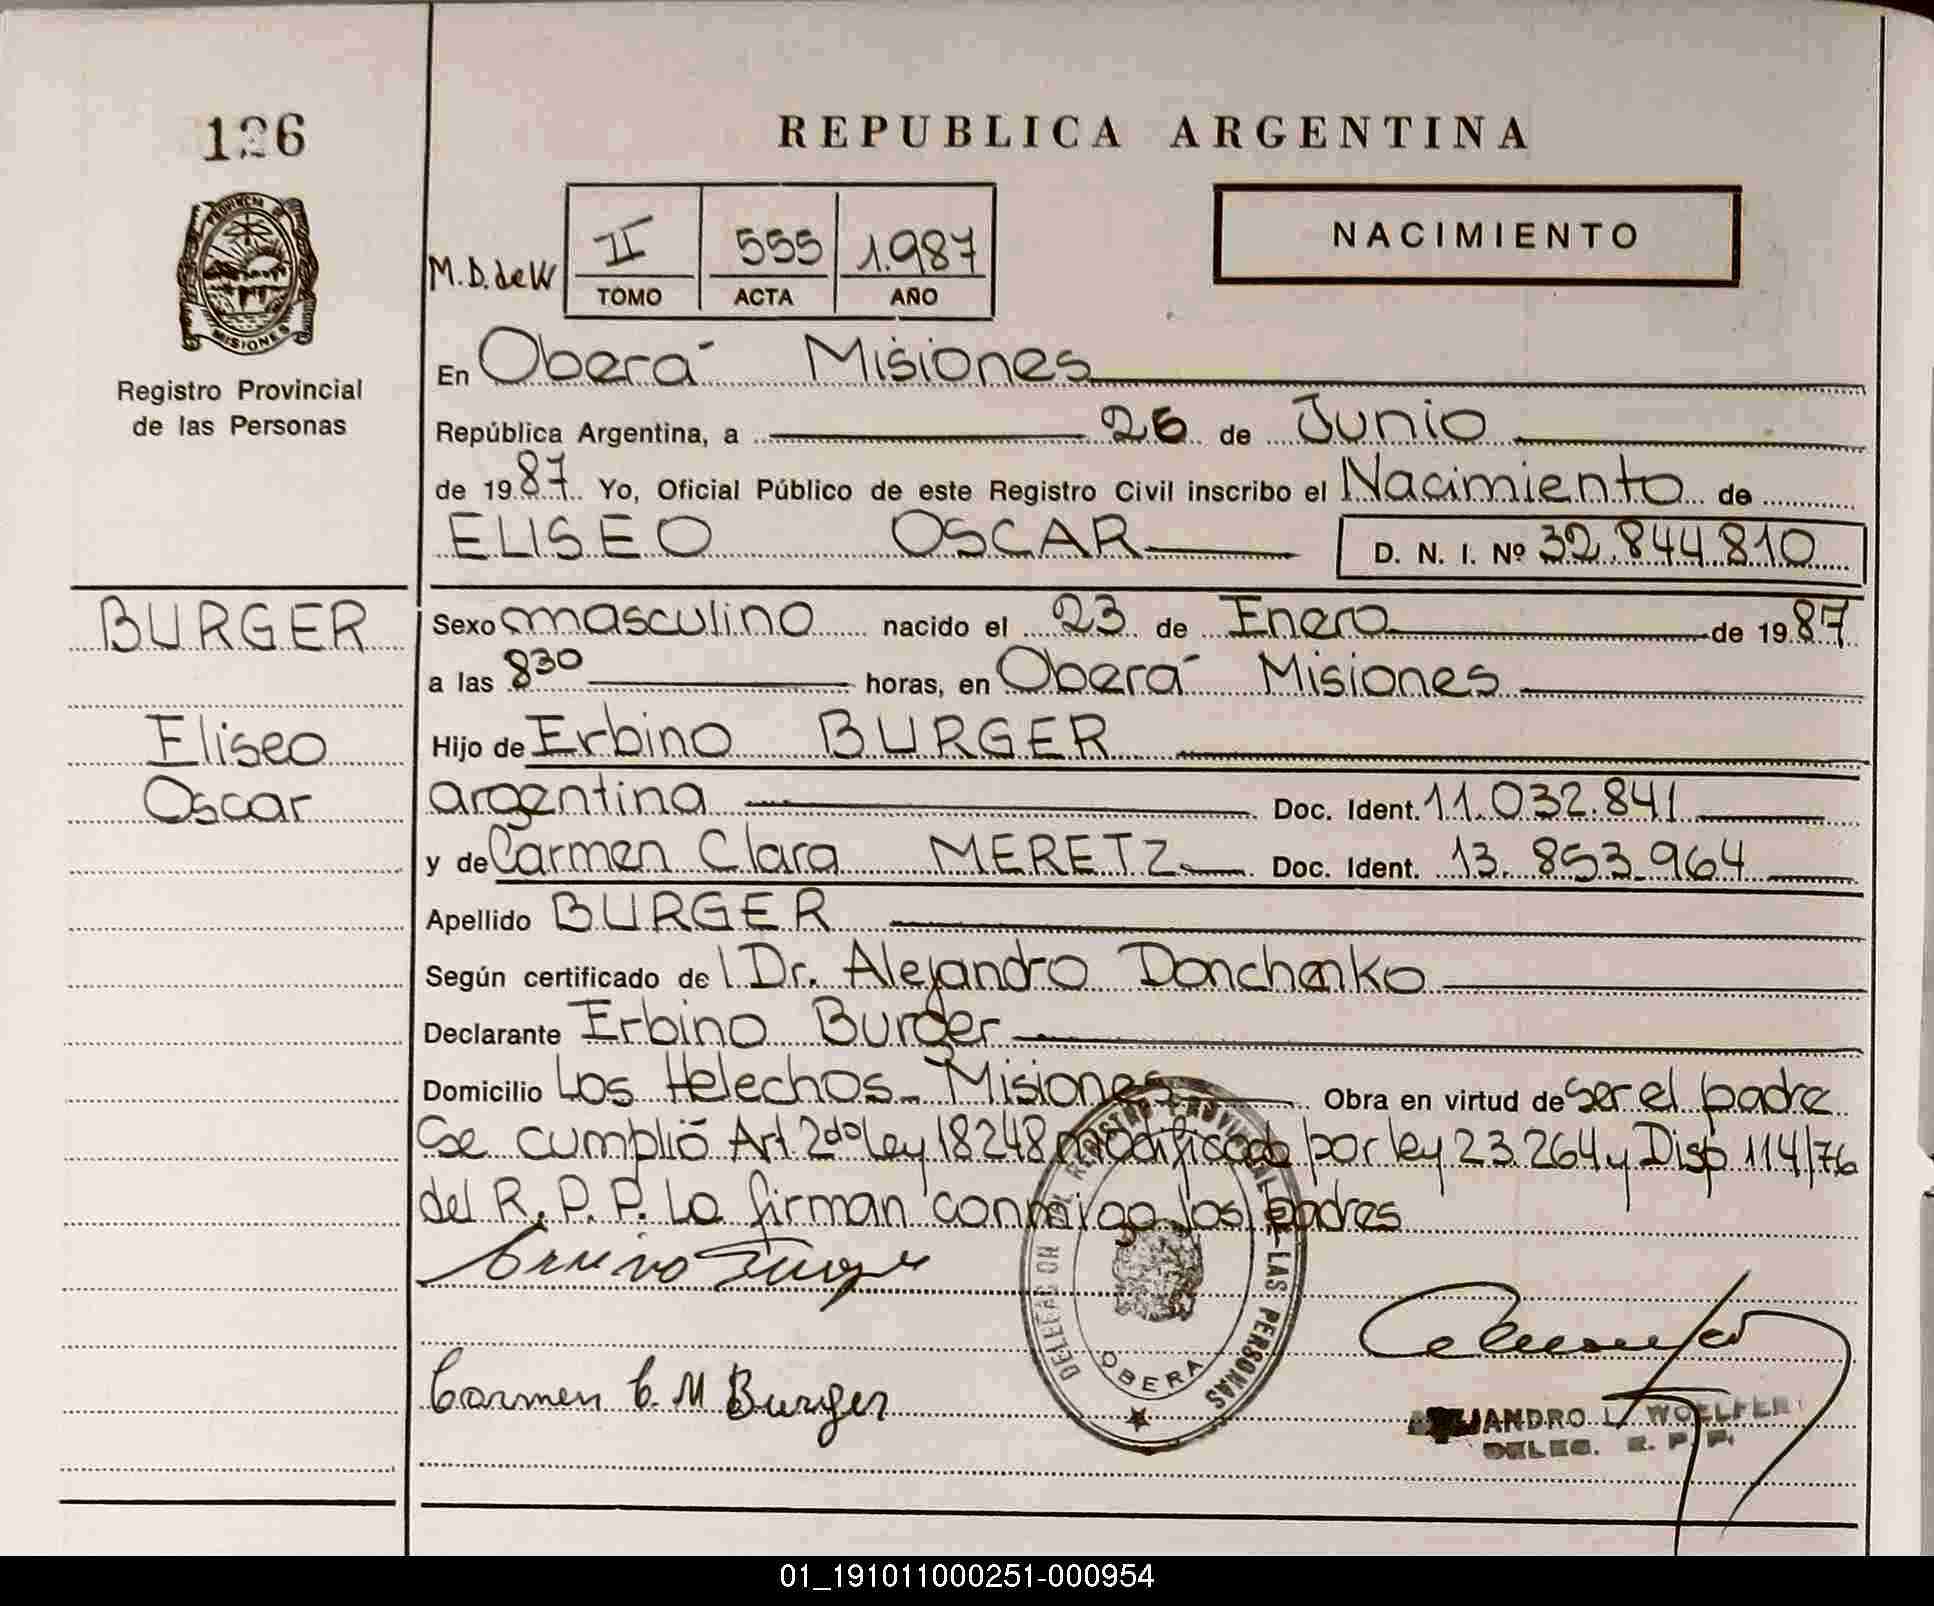 126
REPUBLICA ARGENTINA
PROVINCIA DE
MISIONES
Registro Provincial
de las Personas
M.D. de W
II 555 1.987
TOMO ACTA AÑO
NACIMIENTO
En Oberá Misiones
República Argentina, a 26 de Junio
de 1987. Yo, Oficial Público de este Registro Civil inscribo el Nacimiento de
ELISEO OSCAR D. N. I. Nº 32.844.810
BURGER
Eliseo
Oscar
Sexo masculino nacido el 23 de Enero de 1987
a las 8³⁰ horas, en Oberá Misiones
Hijo de Erbino BURGER
argentina Doc. Ident. 11.032.841
y de Carmen Clara MERETZ Doc. Ident. 13.853.964
Apellido BURGER
Según certificado de l Dr. Alejandro Donchenko
Declarante Erbino Burger
Domicilio Los Helechos - Misiones Obra en virtud de ser el padre
Se cumplió Art. 2do ley 18248 modificado por ley 23.264 y Disp 114/76
del R.P.P. Lo firman conmigo los padres
DELEGACION DEL REGISTRO PROVINCIAL DE LAS PERSONAS
OBERA
Carmen C. M Burger
ALEJANDRO L. WOELFERT
DELEG. R. P. P.
01_191011000251-000954